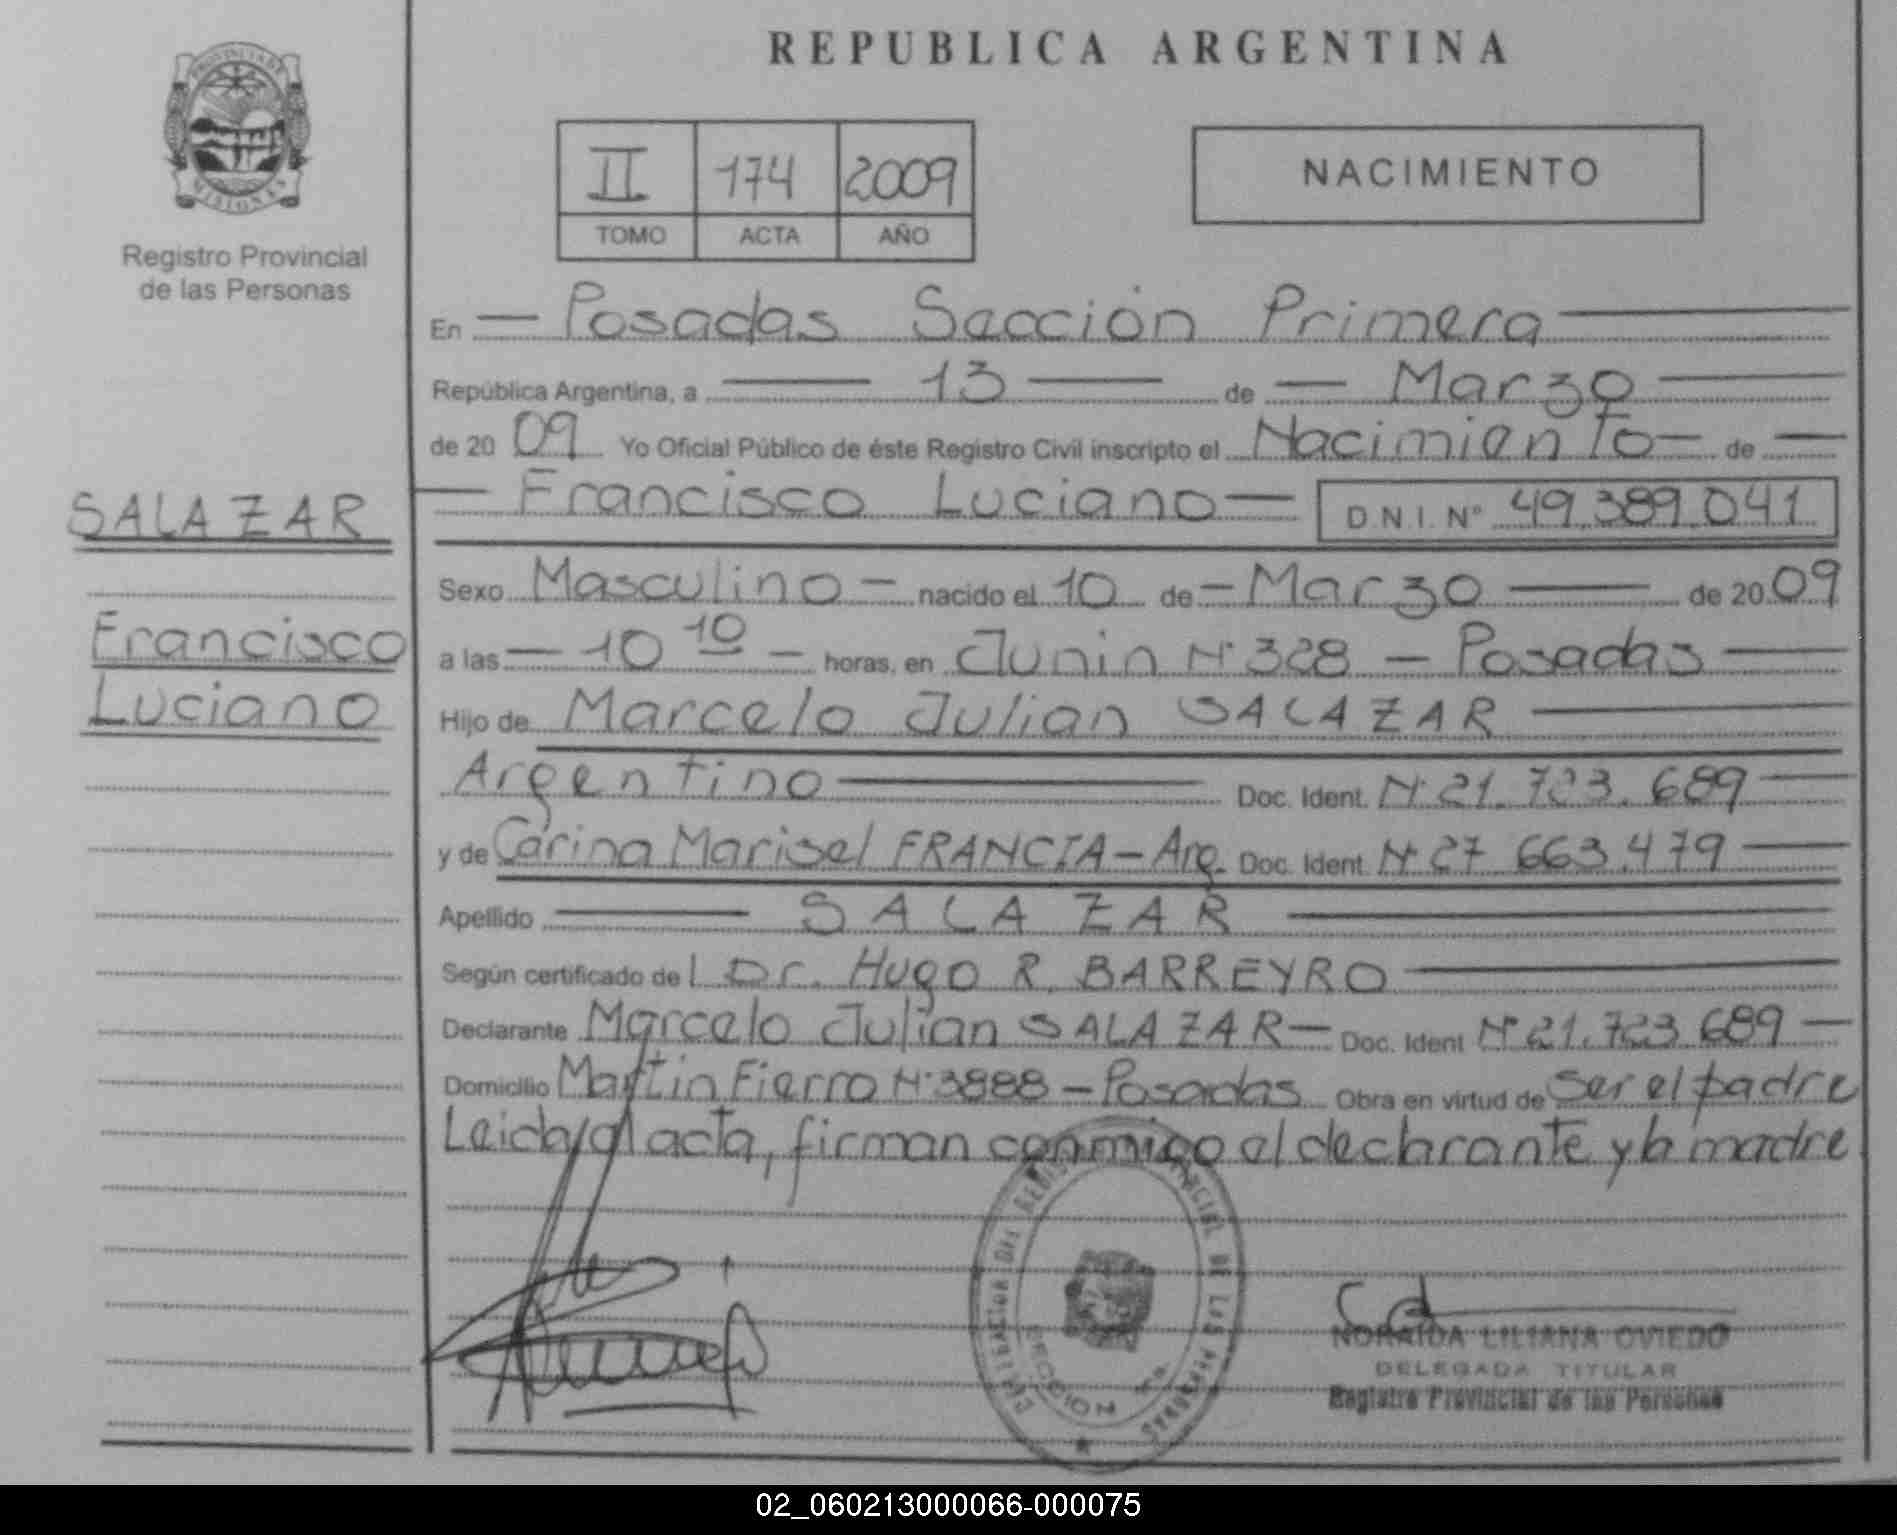 REPUBLICA ARGENTINA
PROVINCIA DE
MISIONES
Registro Provincial
de las Personas
II 174 2009
TOMO ACTA AÑO
NACIMIENTO
En — Posadas Sección Primera —
República Argentina, a — 13 — de — Marzo —
de 2009 Yo Oficial Público de éste Registro Civil inscripto el Nacimiento — de —
— Francisco Luciano — D.N.I. Nº 49.389.041
SALAZAR
Francisco
Luciano
Sexo Masculino — nacido el 10 de — Marzo — de 2009
a las — 10 10 — horas, en Junin Nº 328 — Posadas —
Hijo de Marcelo Julian SALAZAR —
Argentino — Doc. Ident. Nº 21.723.689 —
y de Carina Marisel FRANCIA — Arg. Doc. Ident. Nº 27 663.479 —
Apellido — SALAZAR —
Según certificado del Dr. Hugo R. BARREYRO —
Declarante Marcelo Julian SALAZAR — Doc. Ident Nº 21.723.689 —
Domicilio Martin Fierro Nº 3888 — Posadas Obra en virtud de ser el padre
Leida el acta, firman conmigo el declarante y la madre
DEL REGISTRO PROVINCIAL DE LAS PERSONAS
SECCION 1ra.
NORAIDA LILIANA OVIEDO
DELEGADA TITULAR
Registro Provincial de las Personas
02_060213000066-000075